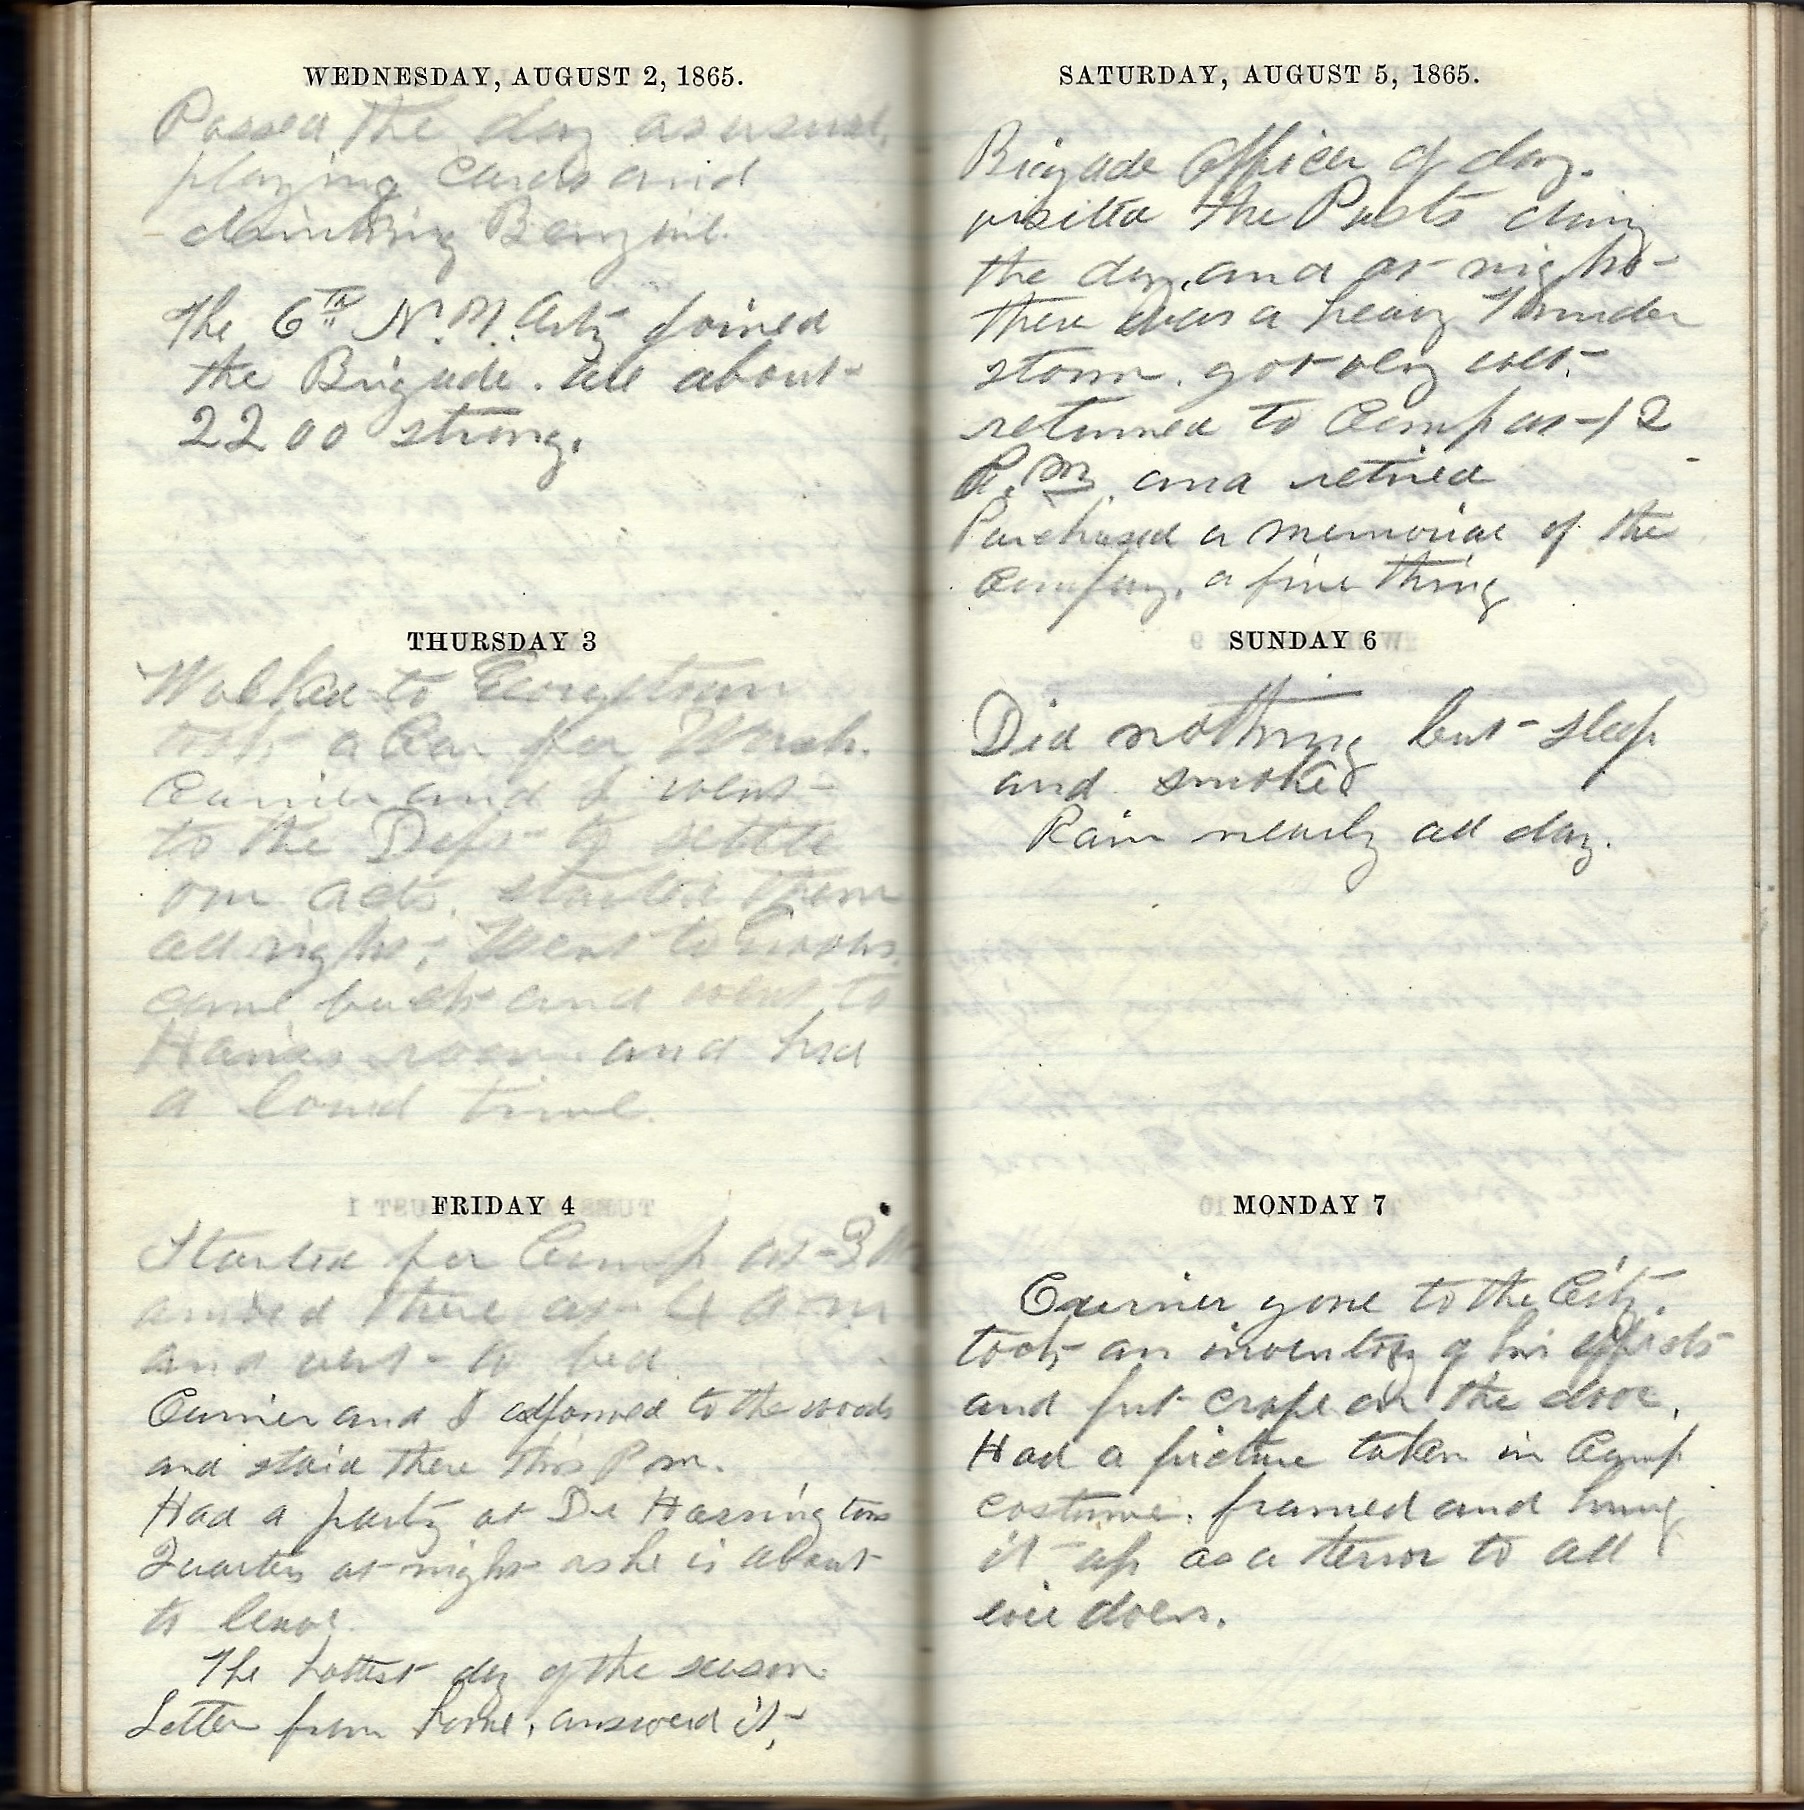 WEDNESDAY, AUGUST 2, 1865.
Passed the day as usual,
playing cards and
drinking Benzine.
The 6th N.Y. Arty joined
the Brigade. are about
2200 strong.
THURSDAY 3
Walked to Georgetown
took a Car for Wash.
Currier and I went
to the Dept to settle
our acts. started them
all right. Went to
came back and went to
room and had
a loud time.
FRIDAY 4
Started for Camp at 3
arrived there at 4 a m
and went to bed
Currier and I adjorned to the woods
and staid there this P m.
Had a party at Dr Harringtons
Quarters at night as he is about
to leave.
The hottest day of the season
Letter from home, answerd it,
SATURDAY, AUGUST 5, 1865.
Brigade Officer of day.
visited the Posts during
the day, and at night
there was a heavy Thunder
storm. got very wet.
returned to Camp at 12
P.M. and retired
Purchased a memorial of the
Company, a fine thing
SUNDAY 6
Did nothing but sleep
and smoke
Rain nearly all day.
MONDAY 7
Currier gone to the City.
took an inventory of his effects
and put crape on the door.
Had a picture taken in Camp
costume. framed and hung
it up as a terror to all
evil doers.